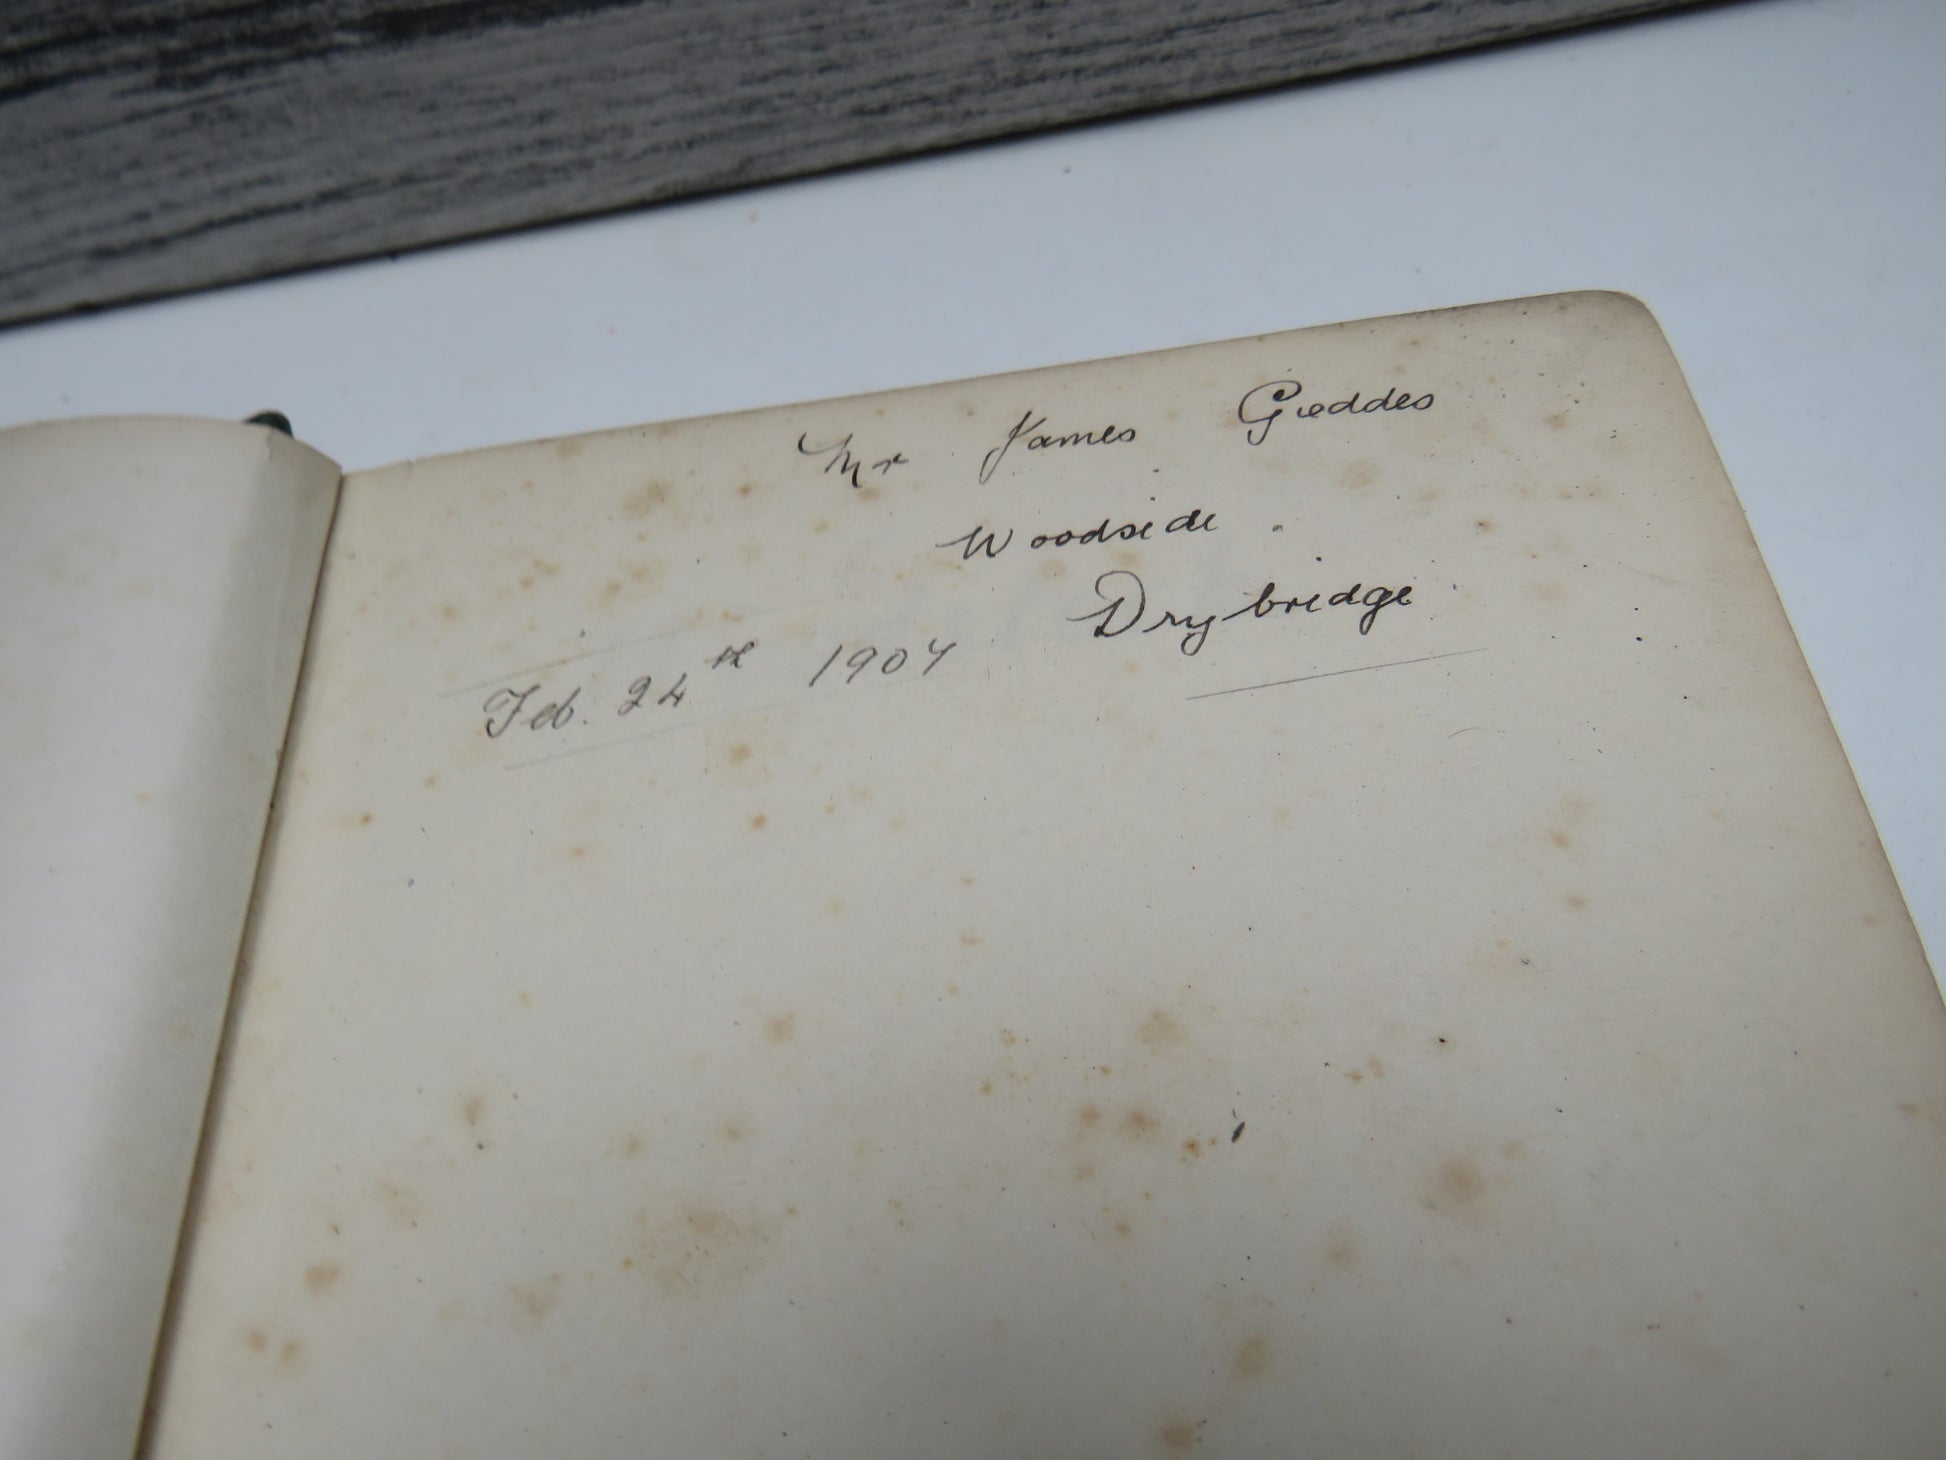 Mr James Geddes
Woodside.
Drybridge
Feb. 24th 1904